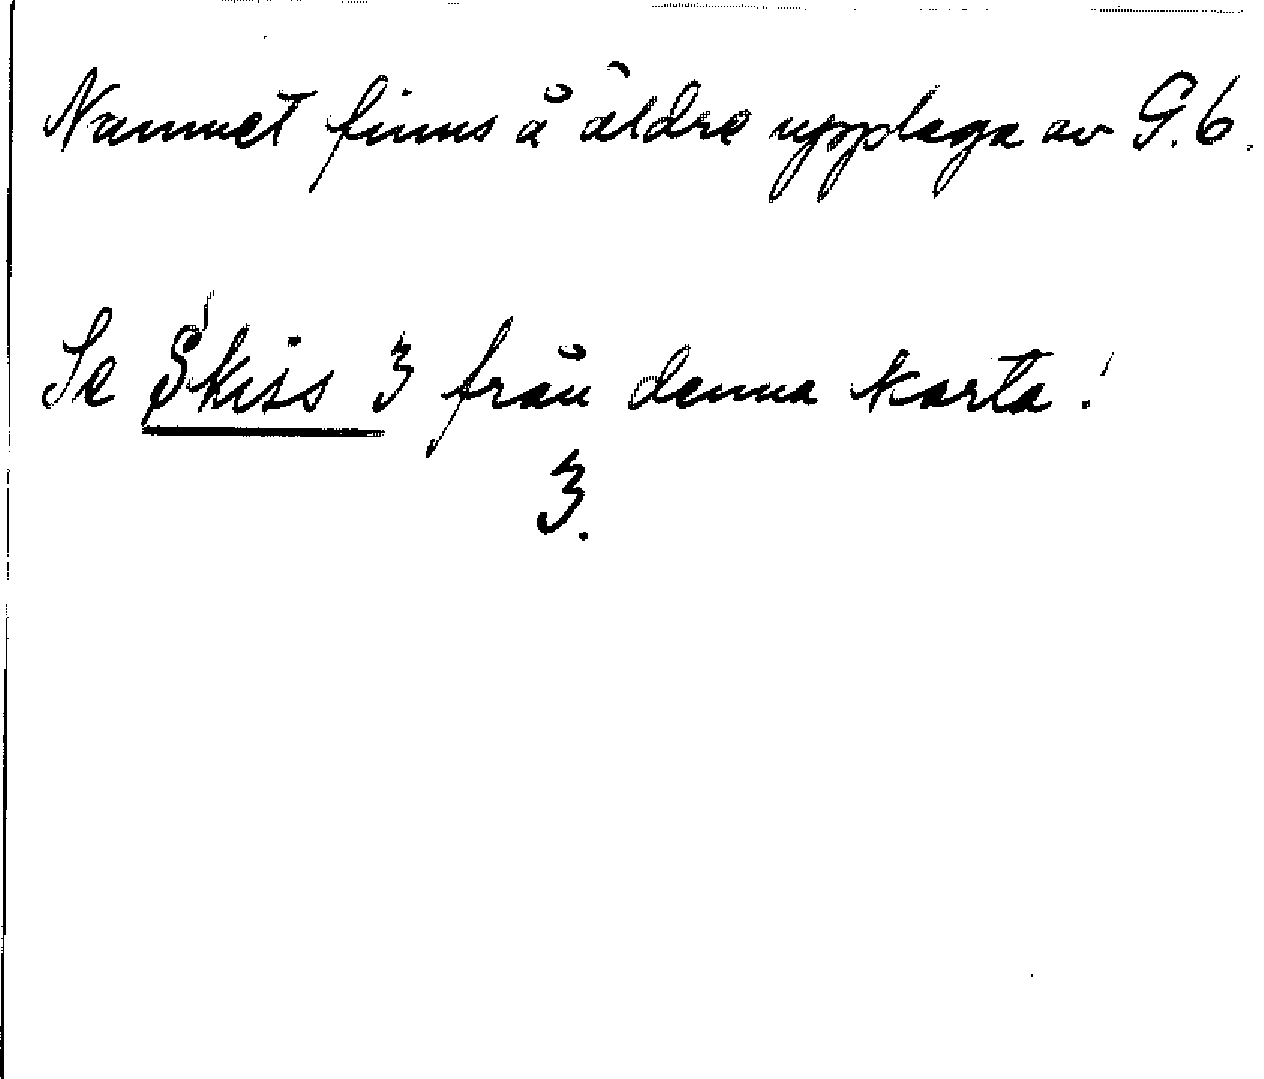 Namnet finns å äldre upplaga av G.6.
Se Skiss 3 från denna karta!
3.